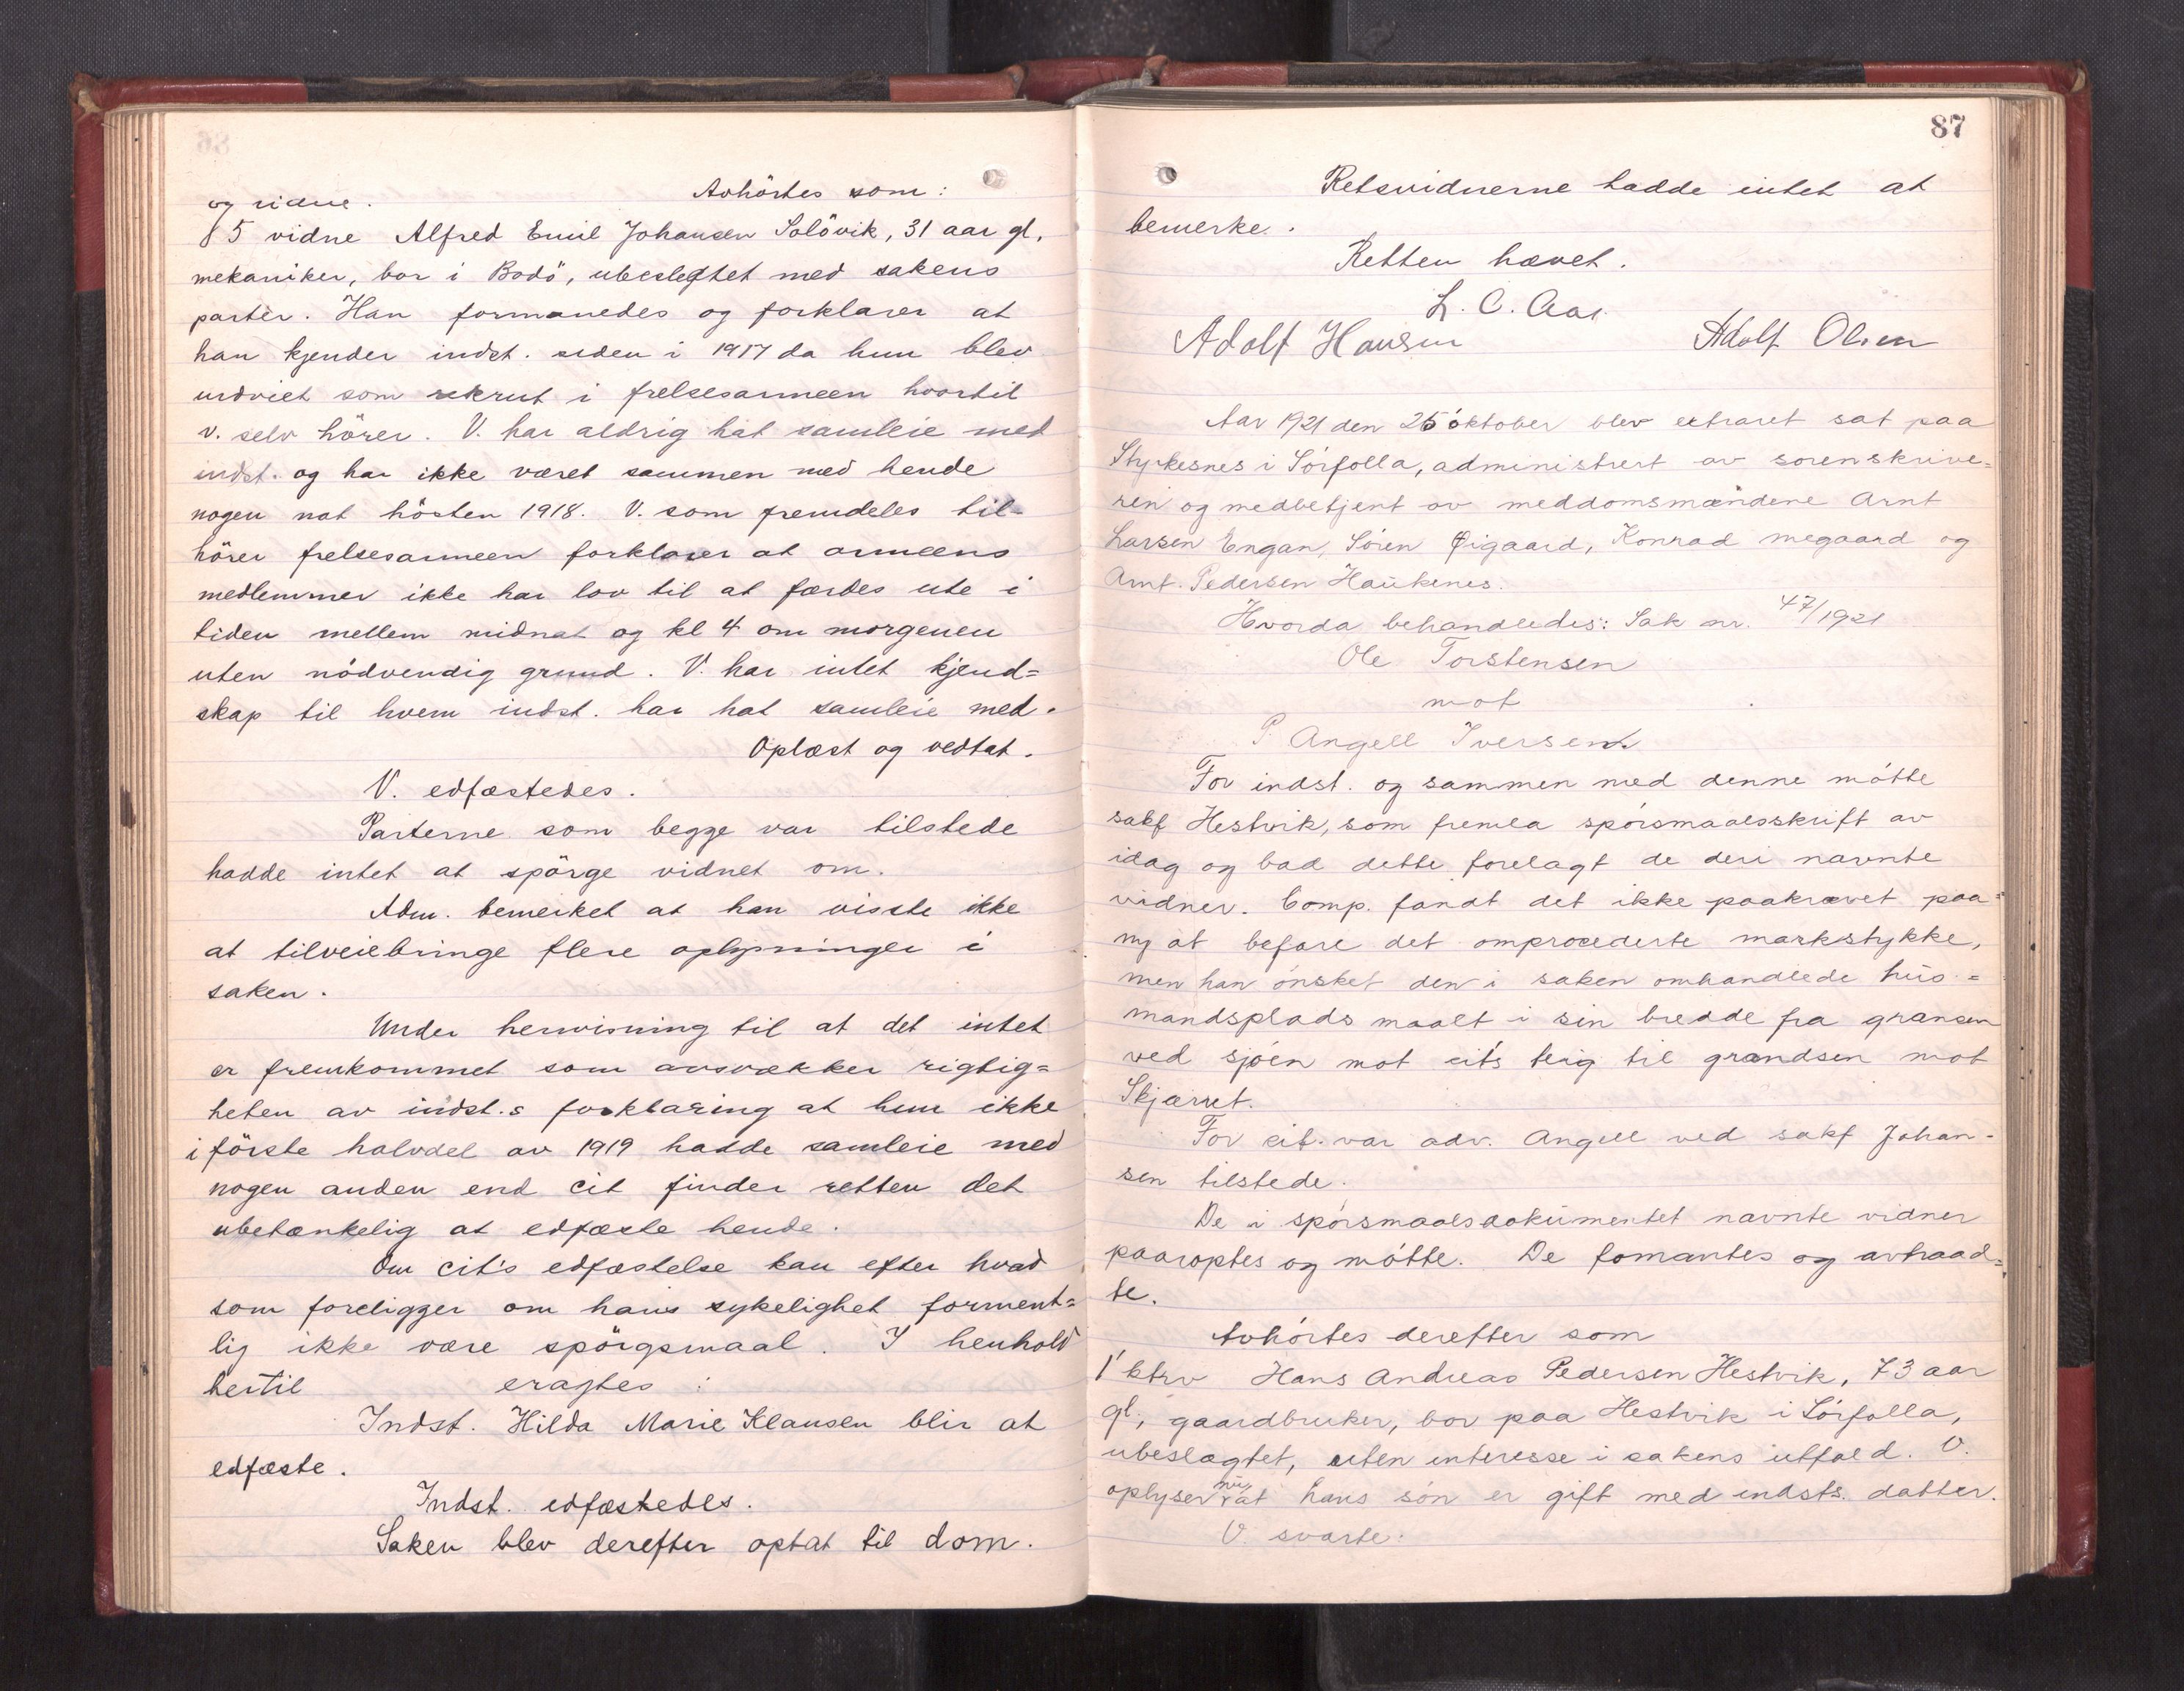 og vidne. Avhörtes som:
5 vidne Alfred Emil Johansen Solövik, 31 aar gl.
mekaniker, bor i Bodö, ubeslegtet med sakens
parter. Han formanedes og forklarer at
han kjender indst. siden i 1917 da hun blev
indviet som rekrut i frelsesarmeen hvortil
v. selv hörer. V. har aldrig hat samleie med
indst. og har ikke været sammen med hende
nogen nat hösten 1918. V. som fremdeles til=
hörer frelsesarmeen forklarer at armeens
medlemmer ikke har lov til at færdes ute i
tiden mellem midnat og kl 4 om morgenen
uten nödvendig grund. V. har intet kjend=
skap til hvem indst. har hat samleie med.
Oplæst og vedtat.
V. edfæstedes.
Parterne som begge var tilstede
hadde intet at spörge vidnet om.
Adm. bemerket at han visste ikke
at tilveiebringe flere oplysninger i
saken.
Under henvisning til at det intet
er fremkommet som avsvækker rigtig=
heten av indst.s forklaring at hun ikke
i förste halvdel av 1919 hadde samleie med
nogen anden end cit finder retten det
ubetænkelig at edfæste hende.
Om cit's edfæstelse kan efter hvad
som foreligger om hans sykelighet forment=
lig ikke være spörgsmaal. I henhold
hertil eragtes:
Indst. Hilda Marie Klausen blir at
edfæste.
Indst. edfæstedes.
Saken blev derefter optat til dom.
87
Retsvidnerne hadde intet at
bemerke.
Retten hævet.
L. C. Aas.
Adolf Hansen Adolf Olsen
Aar 1921 den 25 oktober blev extraret sat paa
Styrkesnes i Sörfolla, administrert av sorenskrive=
ren og medbetjent av meddomsmændene Arnt
Larsen Engan, Sören Øigaard, Konrad Megaard og
Arnt Pedersen Haukenes.
Hvorda behandledes: Sak nr. 47/1921
Ole Torstensen
mot
P. Angell Iversen
For indst. og sammen med denne mötte
sakf Hestvik, som fremla spörsmaalsskrift av
idag og bad dette forelagt de deri navnte
vidner. Comp. fandt det ikke paakrævet paa=
ny at befare det omprocederte markstykke,
men han önsket den i saken omhandlede hus=
mandsplads maalt i sin bredde fra grænsen
ved sjöen mot cit's teig til grændsen mot
Skjæret.
For cit. var adv. Angell ved sakf Johan-
sen tilstede.
De i spörsmaalsdokumentet navnte vidner
paaroptes og mötte. De fomantes og avtraad=
te.
Avhörtes derefter som
1' ktrv Hans Andreas Pedersen Hestvik, 73 aar
gl., gaardbruker, bor paa Hestvik i Sörfolla,
ubeslægtet, uten interesse i sakens utfald. V.
oplyser at hans sön er gift med indsts. datter.
V. svarte.